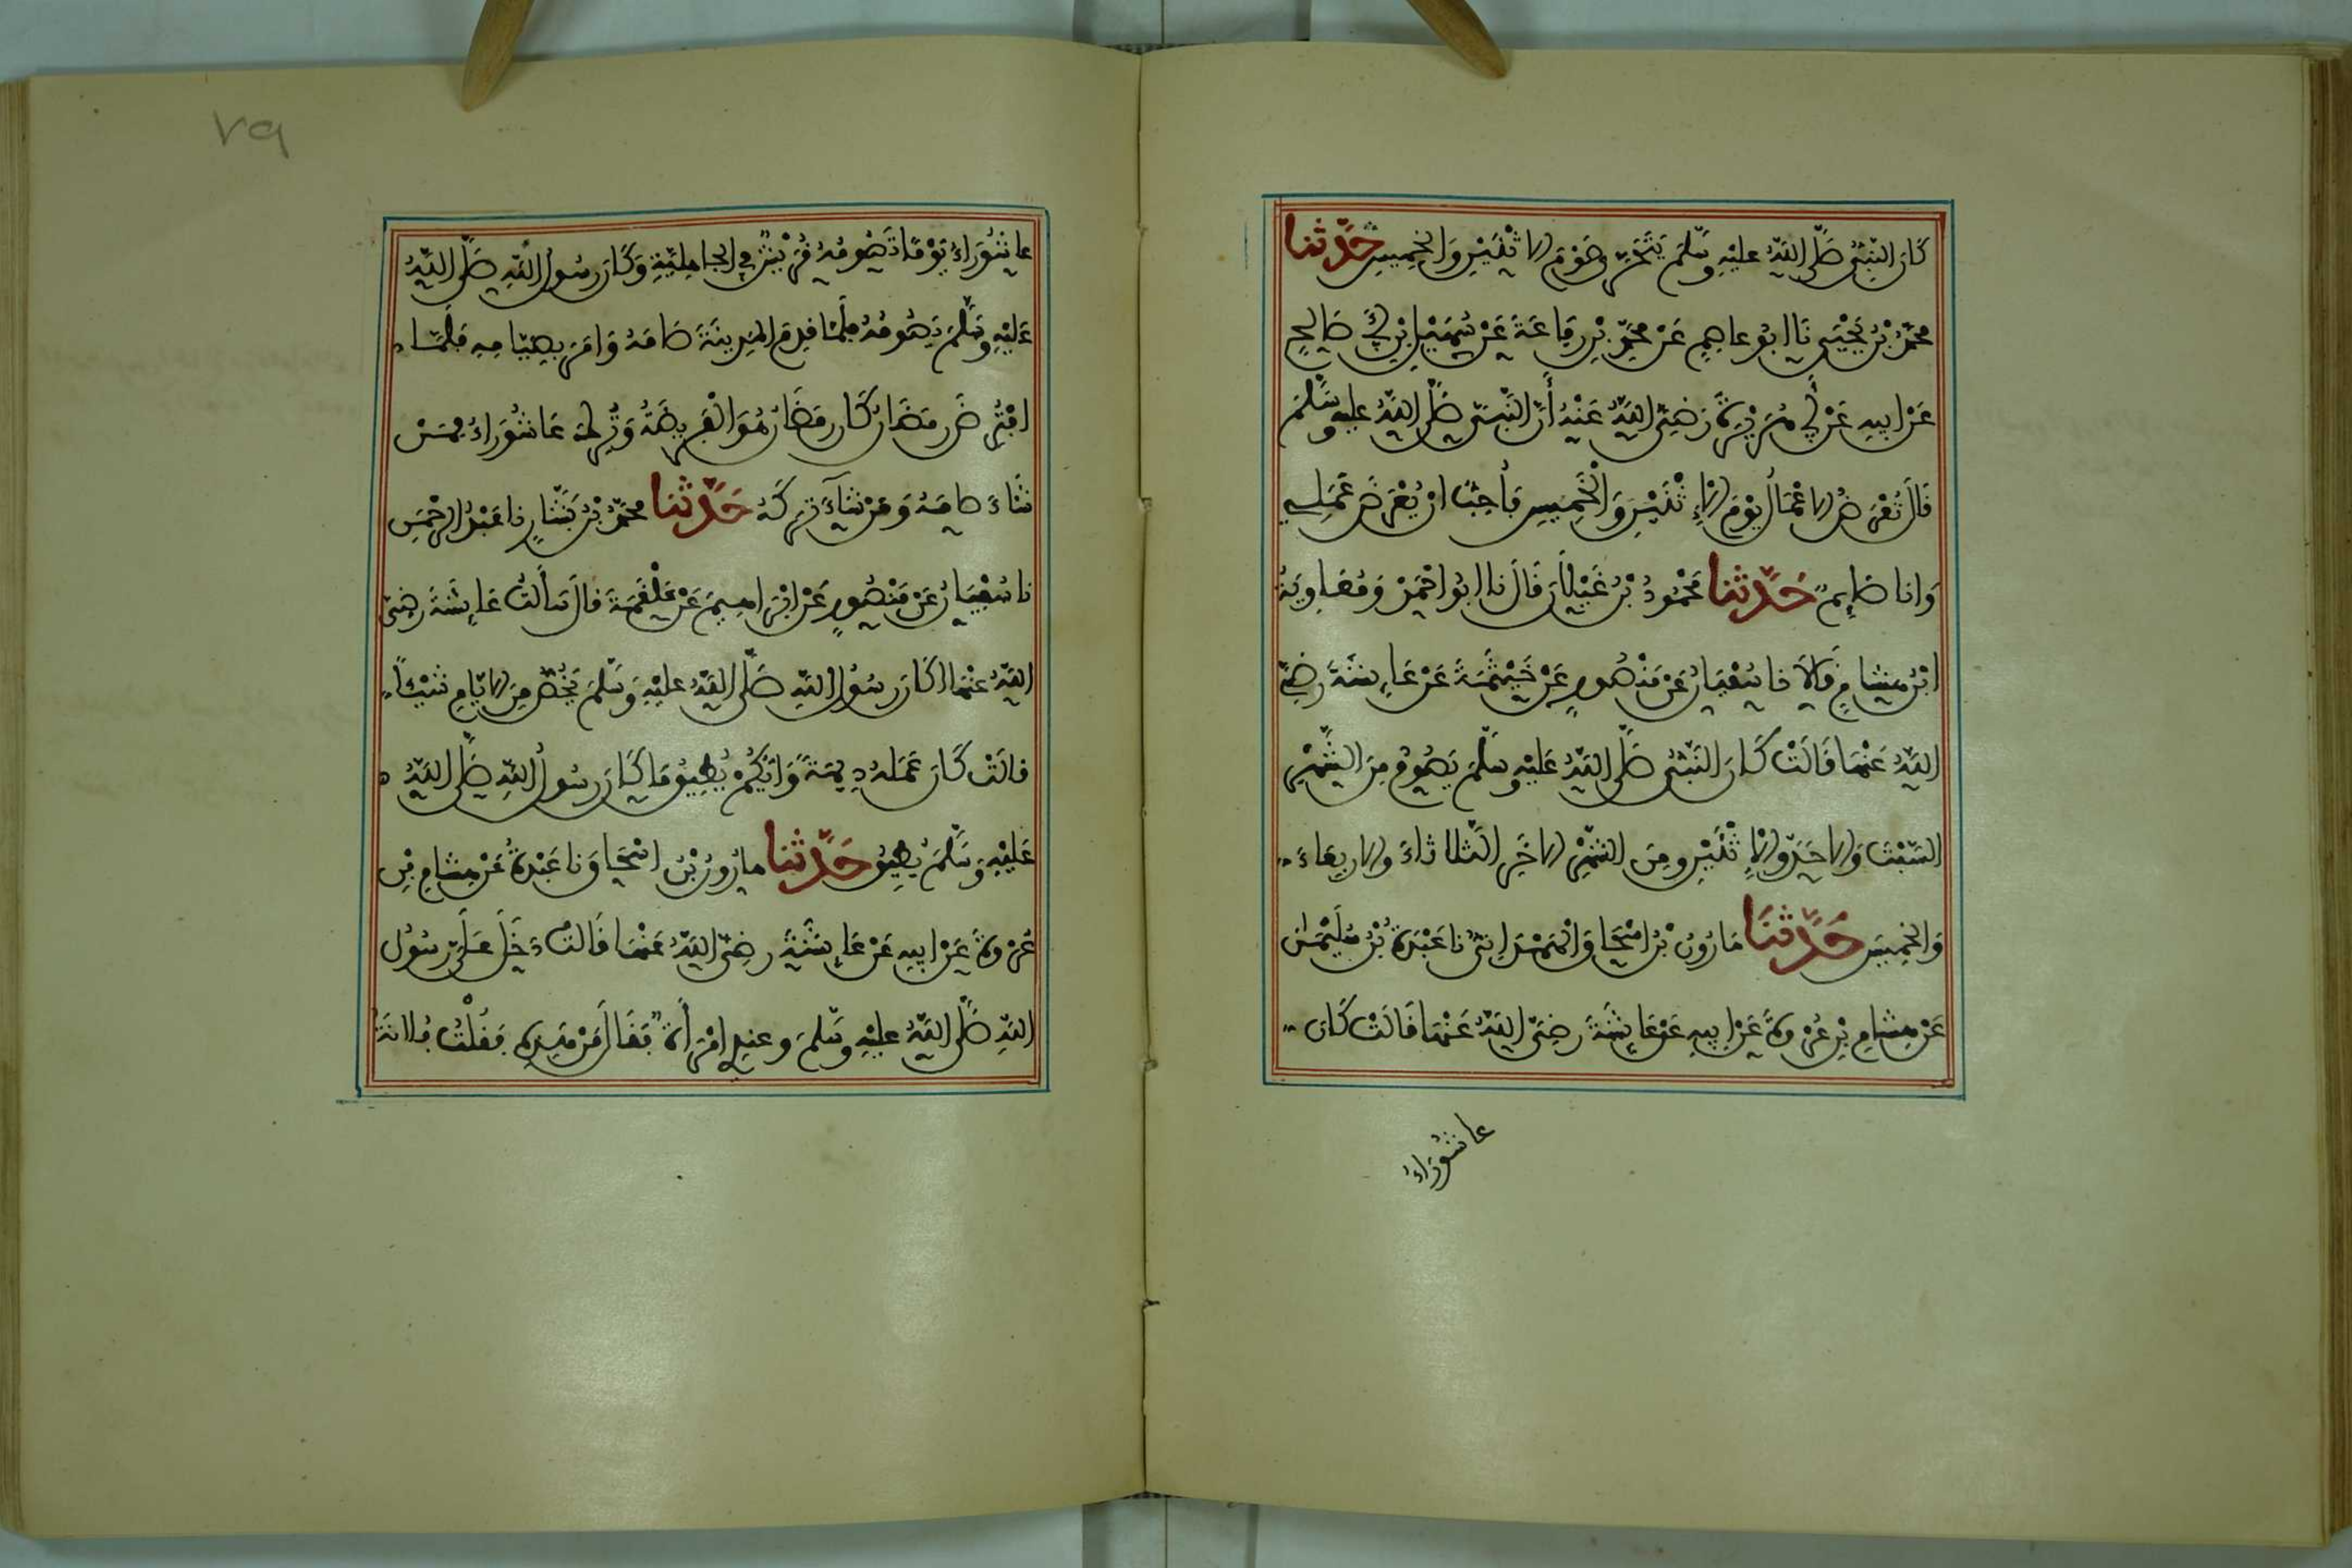 كَانَ النَّبِيُّ صَلَّى اللَّهُ عليْهِ وسَلَّمَ يَتَحَرَّى صَوْمَ الاثْنَيْنِ وَالخمِيسِ حَدَّثنا
محمَّدُ بْنُ يَحْيَى نَا ابُو عاصِمٍ عَنْ محمَّدِ بْنِ رِفَاعَةَ عَنْ سُهَيْلِ بْنِ أَبِي صَالِحٍ
عَنْ ابِيهِ عَنْ أَبِي هُرَيْرَةَ رَضِيَ اللَّهُ عَنْهُ أَنَّ النَّبِيَّ صَلَّى اللَّهُ عليهِ وسَلَّمَ
قَالَ تُعْرَضُ الاعْمَالُ يَوْمَ الاِثْنَيْنِ وَالْخَمِيسِ فَأُحِبُّ انْ يُعْرَضَ عَمَلِي
وَانا صَائِمٌ حَدَّثنا مَحْمُودُ بْنُ غَيْلانَ قَالَ نا ابُو احْمَدَ وَمُعَاوِيَةُ
ابْنُ هِشَامٍ قَالاَ نا سُفْيَانُ عَنْ مَنْصُورٍ عَنْ خَيْثَمَةَ عَنْ عَائِشَةَ رَضِيَ
اللَّهُ عَنْهَا قَالَتْ كَانَ النَّبِيُّ صَلَّى اللَّهُ عَلَيْهِ وسَلَّمَ يَصُومُ مِنَ الشَّهْرِ
السَّبْتَ وَالاحَدَ وَالاِثْنَيْنِ ومِنَ الشَّهْرِ الاخَرِ الثَّلاثاءَ والاربِعَاءَ
وَالخمِيسَ حَدَّثَنَا هَارُونُ بْنُ اسْحَاقَ الْهَمْدَانِيُّ نا عَبْدَةُ بْنُ سُلَيْمَانَ
عَنْ هِشَامِ بْنِ عُرْوَةَ عَنْ ابِيهِ عَنْ عَائِشَةَ رَضِيَ اللَّهُ عَنْهَا قَالَتْ كَانَ
عاشُورَاءُ
٧٩
عاشُورَاءُ يَوْمًا تَصُومُهُ قُرَيْشٌ فِي الجاهِلِيَّةِ وَكَانَ رَسُولُ اللَّهِ صَلَّى اللَّهُ
عَلَيْهِ وسَلَّمَ يَصُومُهُ فلَمَّا قدِمَ المَدِينَةَ صَامَهُ وَامَرَ بِصِيَامِهِ فَلَمَّا
افْتُرِضَ رمَضَانُ كَانَ رمَضَانُ هُوَ الْفَرِيضَةُ وَتُرِكَ عَاشُورَاءُ فمَنْ
شَاءَ صامَهُ وَمَنْ شَاءَ تَرَكَهُ حَدَّثنا محمَّدُ بْنُ بَشَّارٍ نا عَبْدُ الرَّحْمَنِ
نا سُفْيَانُ عَنْ مَنْصُورٍ عَنْ ابْرَاهِيمَ عَنْ عَلْقَمَةَ قالَ سَأَلتُ عَائِشَةَ رَضِيَ
اللَّهُ عنْهَا اكَانَ رسُولُ اللَّهِ صَلَّى اللَّهُ عليْهِ وَسَلَّمَ يَخُصُّ مِنَ الايَّامِ شَيْئًا
قالَتْ كَانَ عَمَلُهُ دِيمَةً وَايُّكُمْ يُطِيقُ مَا كَانَ رسُولُ اللَّهِ صَلَّى اللَّهُ
عَلَيْهِ وَسَلَّمَ يُطِيقُ حَدَّثنا هارُونُ بْنُ اسْحَاقَ نا عَبْدَةُ عَنْ هِشَامِ بْنِ
عُرْوَةَ عَنْ ابِيهِ عَنْ عَائِشَةَ رضِيَ اللَّهُ عَنْهَا قَالَتْ دَخَلَ عَلَيَّ رسُولُ
اللَّهِ صَلَّى اللَّهُ عليْهِ وسَلَّمَ وعندِي امْرَأَةٌ فَقَالَ مَنْ هَذِهِ فَقُلْتُ فُلانَةُ